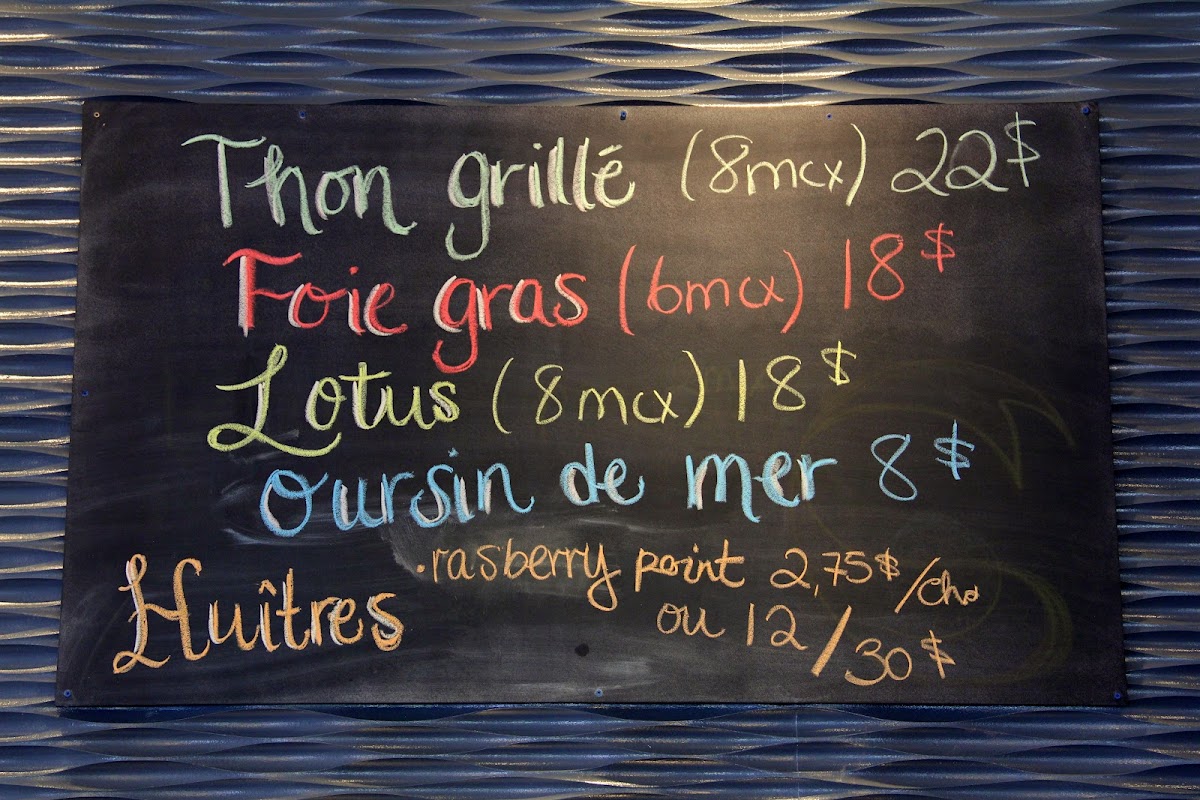 Thon grillé (8mcx) 22$
Foie gras (6mcx) 18$
Lotus (8mcx) 18$
Oursin de mer 8$
Huîtres
.rasberry point 2,75$/ch
ou 12/30$